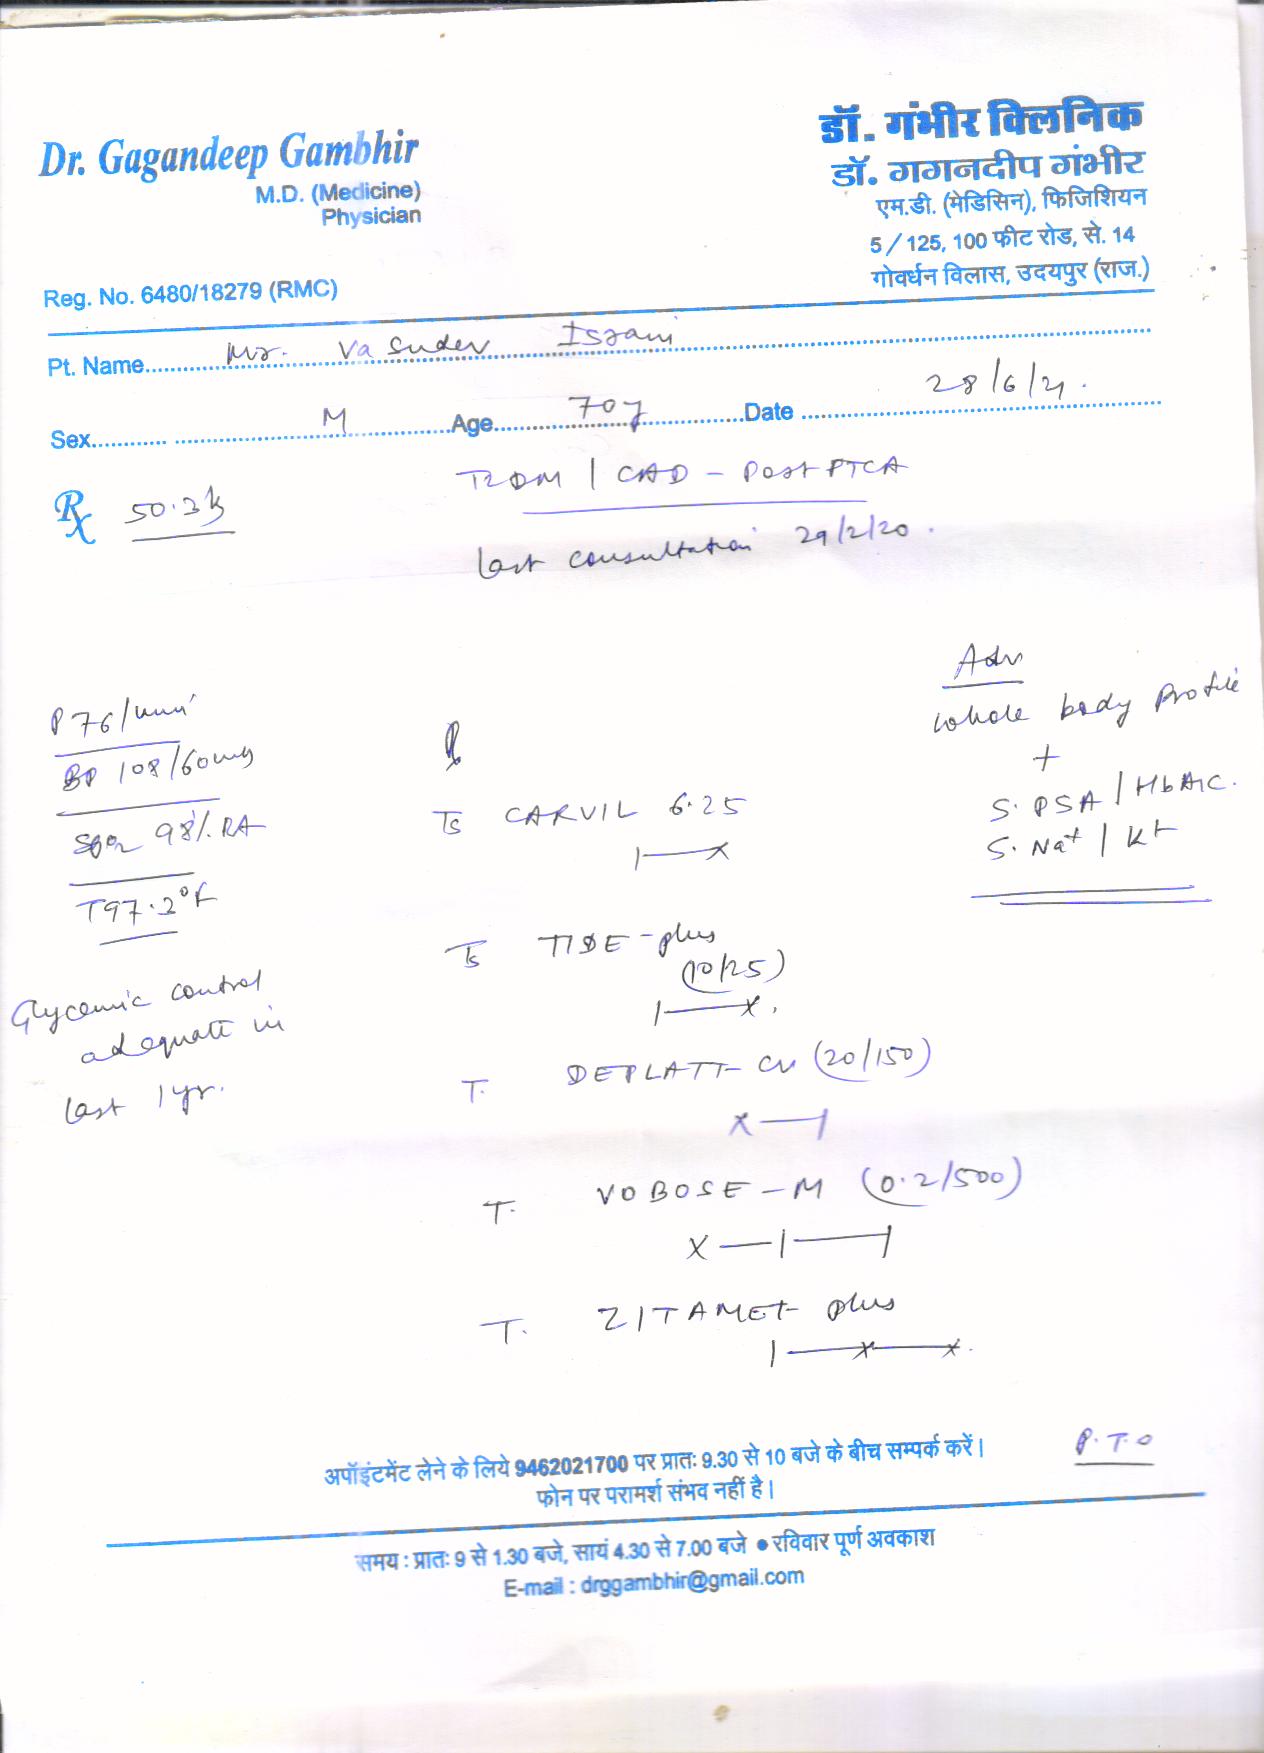 Dr. Gagandeep Gambhir
M.D. (Medicine)
Physician
Reg. No. 6480/18279 (RMC)
डॉ. गंभीर क्लिनिक
डॉ. गगनदीप गंभीर
एम.डी. (मेडिसिन), फिजिशियन
5/125, 100 फीट रोड, से. 14
गोवर्धन विलास, उदयपुर (राज.)
Pt. Name Mr. Vasudev Israni
Sex M Age 70y Date 28/6/21.
T2DM / CAD - Post PTCA
Rx 50.3k
last consultation 29/2/20.
P 76/min
BP 108/60mg
SPO2 98% RA
T97.2°F
Glycemic control
adequate in
last 1yr.
Rx
Ts CARVIL 6.25
1—x
Ts TIDE-plus
(10/25)
1—x.
T. DEPLATT-CV (20/150)
x—1
T. VOBOSE-M (0.2/500)
x—1—1
T. ZITAMET plus
1—x—x.
Adv
whole body Profile
+
S. PSA / HbA1c.
S. Na+ / K+
P.T.O
अपॉइंटमेंट लेने के लिये 9462021700 पर प्रातः 9.30 से 10 बजे के बीच सम्पर्क करें।
फोन पर परामर्श संभव नहीं है।
समय : प्रातः 9 से 1.30 बजे, सायं 4.30 से 7.00 बजे ● रविवार पूर्ण अवकाश
E-mail : drggambhir@gmail.com